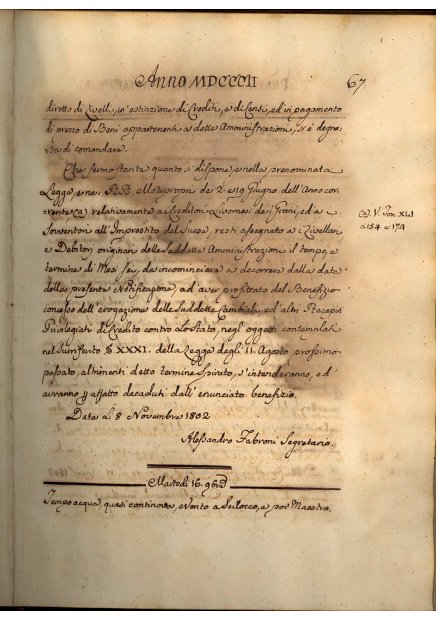 Anno MDCCCII
67
diretto di Livelli, in estinzione di Crediti, e di Censi, ed in pagamento
di prezzo di Beni appartenenti a dette Amministrazioni, si è degna-
ta di comandare.
Che ferme stante quanto si dispone, e nella prenominata
Legge, e nei RR. Motupropri de 2. e 19 Giugno dell'Anno cor-
rente (a) relativamente ai Creditori Livornesi dei Grani, ed a
Sovventori all'Imprestito del Suese, resti assegnato ai Livellari,
e Debitori originari delle Suddette Amministrazioni il tempo, e
termine di Mesi sei, da incominciare a decorrere dalla data
della presente Notificazione ad aver profittato del Benefizio
concesso dell'erogazione delle Suddette Cambiali, ed altri Recapiti
Privilegiati di Credito contro lo Stato, negli oggetti contemplati
nel surriferito §. XXXI. della Legge degli 11. Agosto prossimo
passato, altrimenti detto termine spirato, s'intenderanno, ed
avranno affatto decaduti dall'enunciato benefizio.
Data al 8 Novembre 1802
Alessandro Fabroni Segretario.
(a) V. Tom. XLI
a 154 e 174
Martedì 16. 9bre
Tempo acqua, quasi continova, e Vento a Scilocco, e poi Maestro.